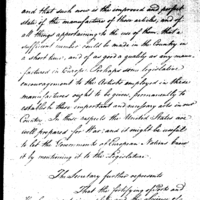 and that such now is the improved and perfect
state of the manufacture of these articles, and of
all things appertaining to the use of them; that a
sufficient number could be made in the Country in
a short time; and of as good a quality as any man-
ufactured in Europe. Perhaps some legislative
encouragement to the Artists employed in these
manufactures ought to be given, permanently to
establish these important and necessary arts in our
Country. In these respects the United States are
well prepared for War; and it might be useful
to let the Governments of European Nations know
it by mentioning it to the Legislature.
The Secretary further represents
That the fortifying of Ports and